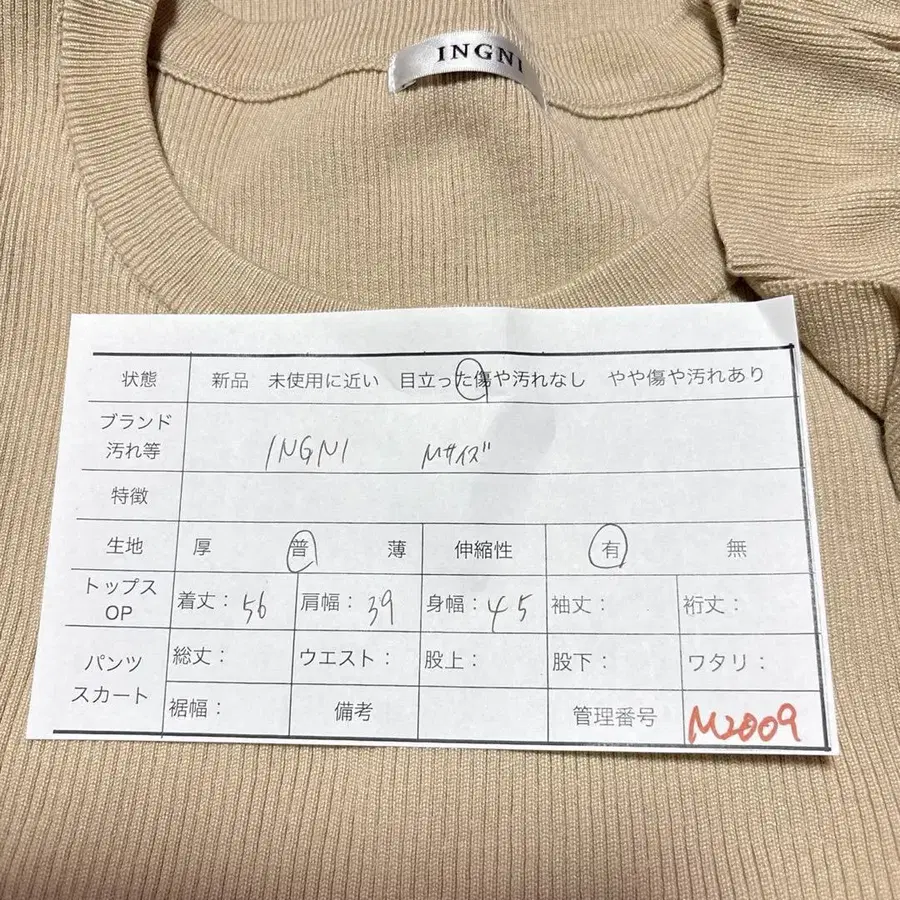 INGNI
状態 新品 未使用に近い 目立った傷や汚れなし やや傷や汚れあり
ブランド
汚れ等 INGNI Mサイズ
特徴
生地 厚 普 薄 伸縮性 有 無
トップス
OP 着丈: 56 肩幅: 39 身幅: 45 袖丈: 裄丈:
パンツ
スカート 総丈: ウエスト: 股上: 股下: ワタリ:
裾幅: 備考 管理番号 M2009